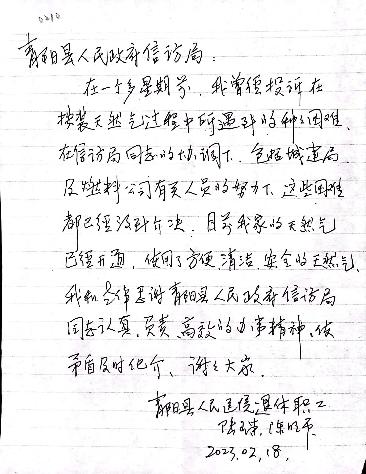 0210
青阳县人民政府信访局:
在一个多星期前,我曾经投诉在
换装天然气过程中所遇到的种种困难,
在信访局同志的协调下,包括城建局
及燃料公司有关人员的努力下,这些困难
都已经得到介决,目前我家的天然气
已经开通,使用了方便、清洁、安全的天然气,
我们感谢青阳县人民政府信访局
同志认真、负责、高效的办事精神,使
矛盾及时化介、谢谢大家。
青阳县人民医院退休职工
2023.02.18.